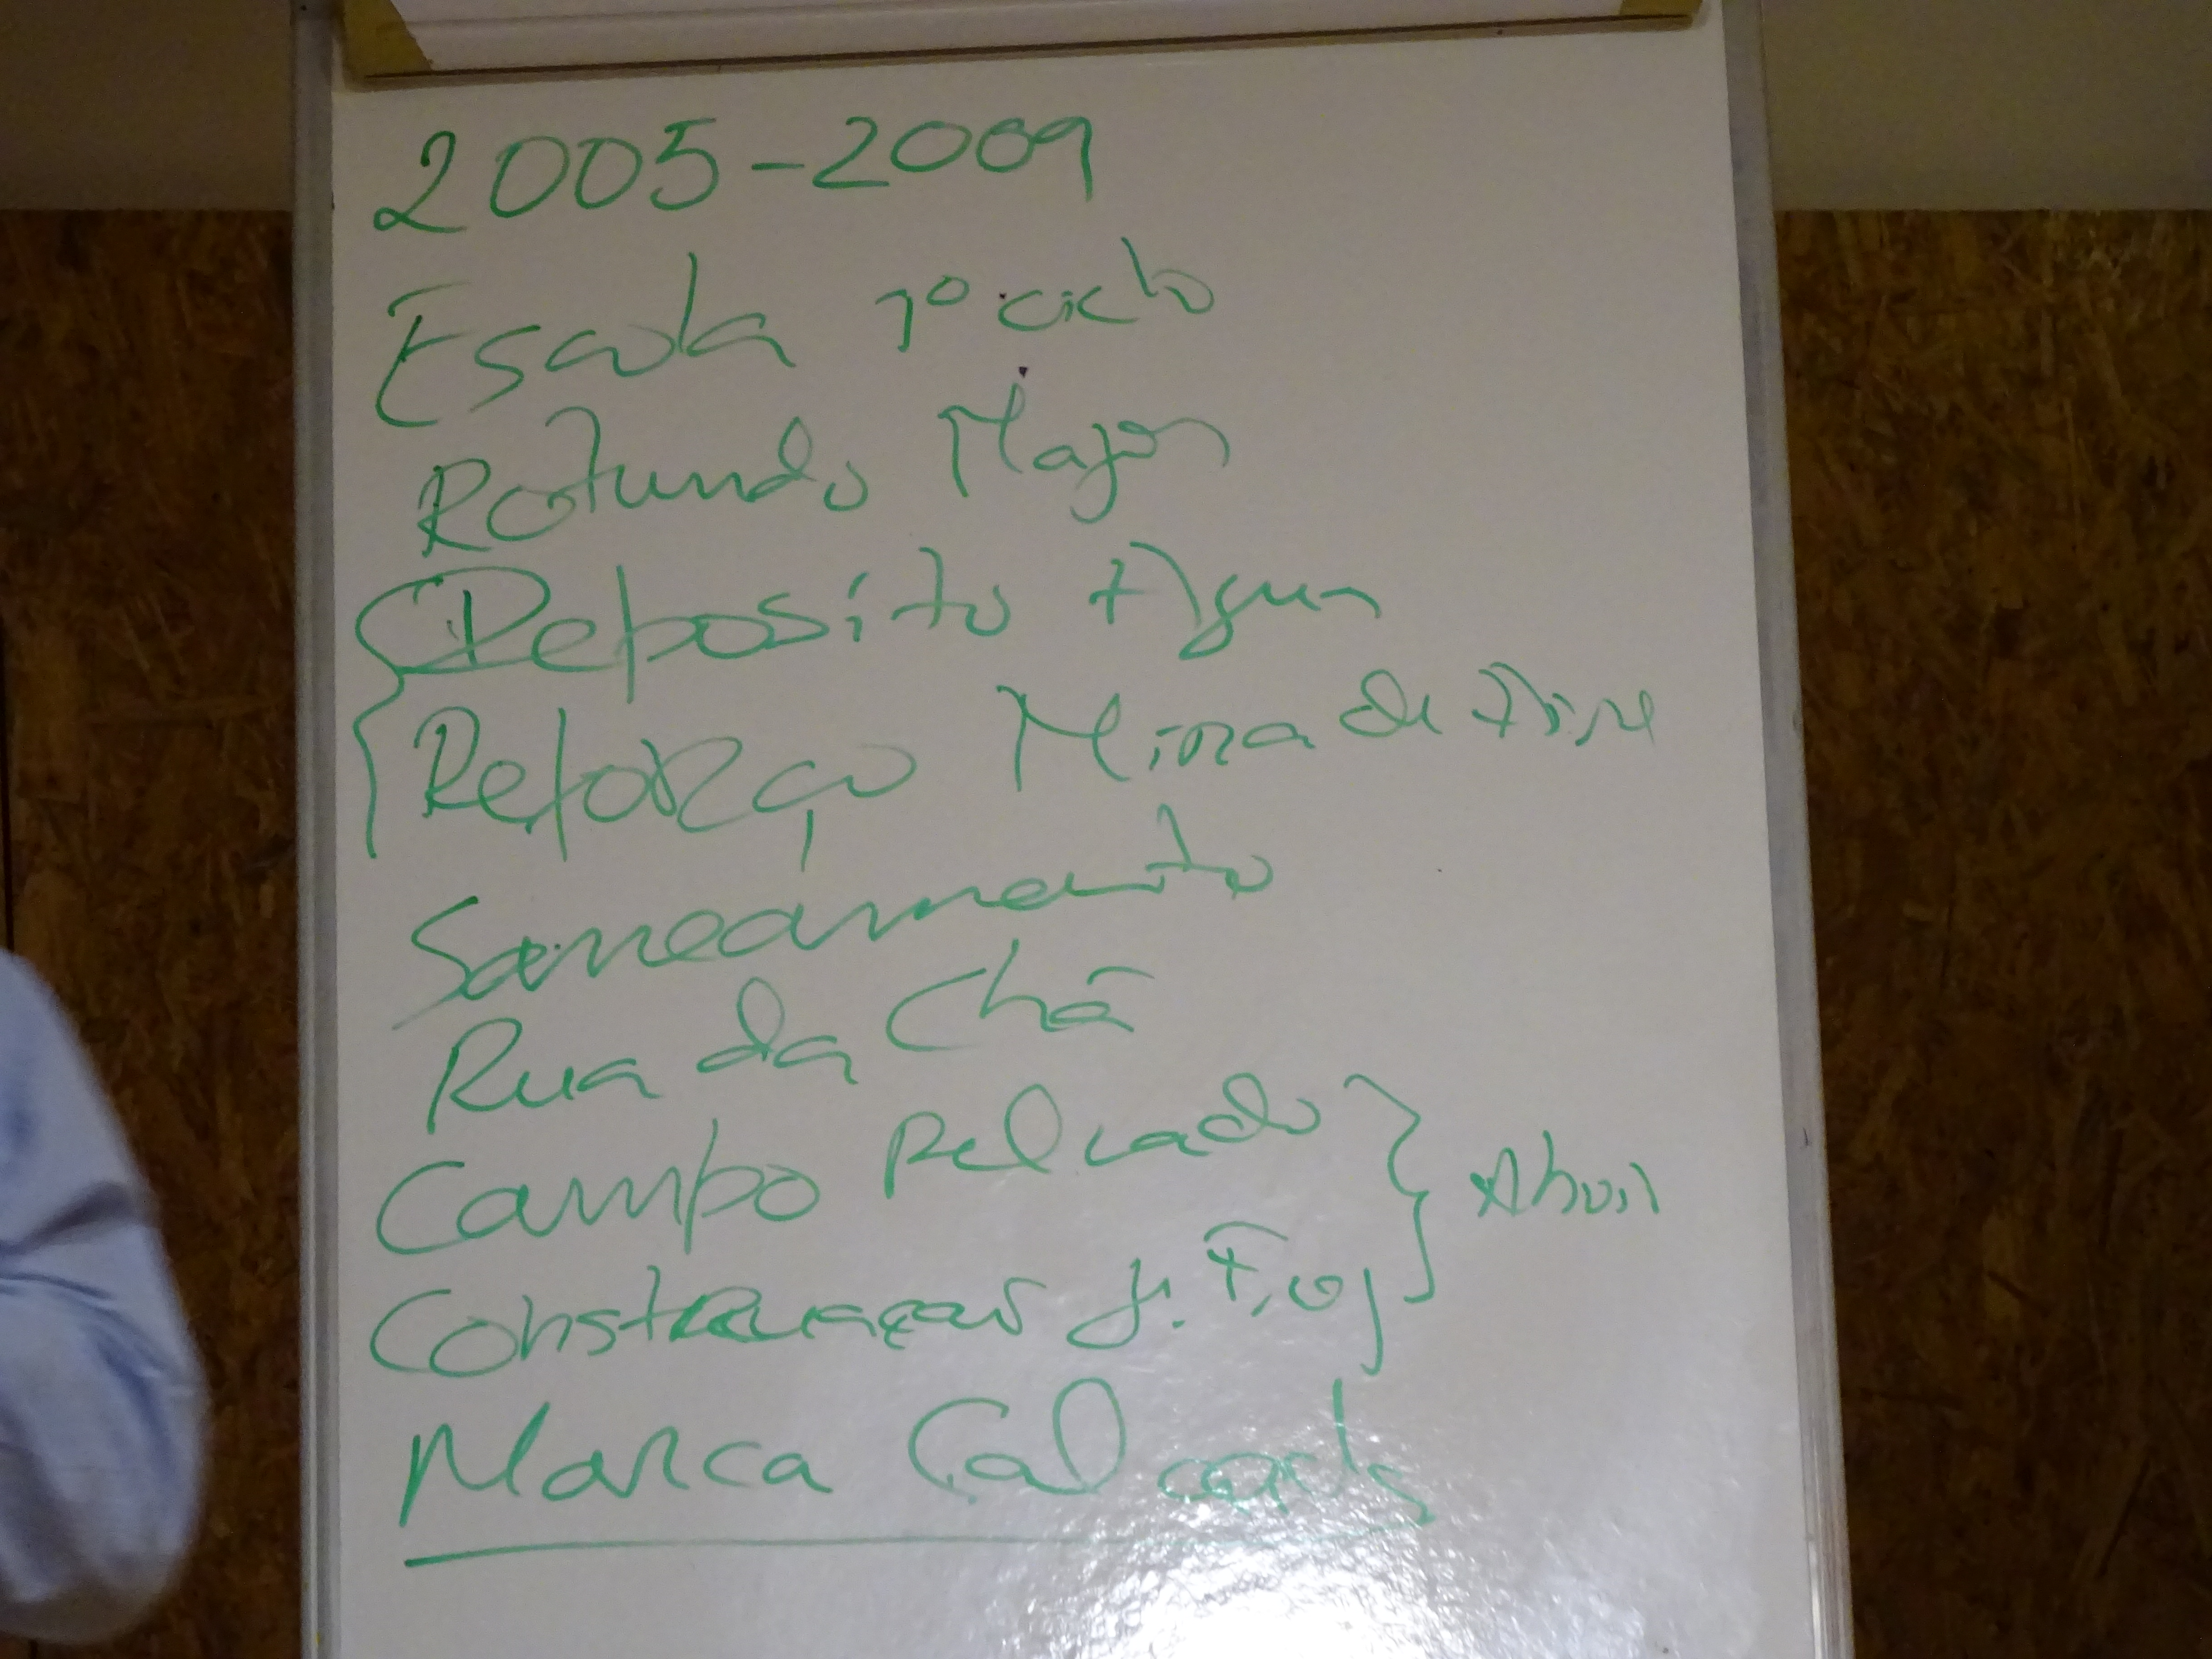 2005-2009
Escola 1º ciclo
Rotunda Major
Deposito Agua
Reforço Mina de Aire
Saneamento
Rua da Chã
Campo Pelcado } Abril
Construçcao J. Fios
Marca Calçado